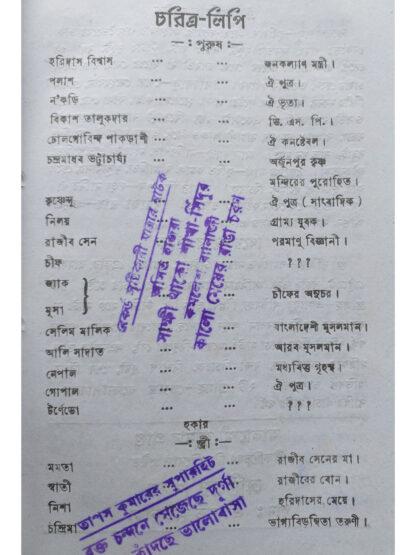 চরিত্র-লিপি
—: পুরুষ :—
হরিদাস বিশ্বাস ... ... জনকল্যাণ মন্ত্রী।
পলাশ ... ... ঐ পুত্র।
ন'কড়ি ... ... ঐ ভৃত্য।
বিকাশ তালুকদার ... ... ডি. এস. পি.।
ঢোলগোবিন্দ পাকড়াশী ... ... ঐ কনষ্টেবল।
চন্দ্রমাধব ভট্টাচার্য্য ... ... অর্জুনপুর কৃষ্ণ
মন্দিরের পুরোহিত।
কৃষ্ণেন্দু ... ঐ পুত্র ( সাংবাদিক )
নিলয় ... গ্রাম্য যুবক।
রাজীব সেন ... পরমাণু বিজ্ঞানী।
চীফ ... ? ? ?
জ্যাক
মুসা } ... চীফের অনুচর।
সেলিম মালিক ... ... বাংলাদেশী মুসলমান।
আলি সাদাত ... ... আরব মুসলমান।
নেপাল ... ... মধ্যবিত্ত গৃহস্থ।
গোপাল ... ... ঐ পুত্র।
টর্ণেডো ... ... ? ? ?
হকার
—: স্ত্রী :—
মমতা রাজীব সেনের মা।
স্বাতী রাজীবের বোন।
নিশা হরিদাসের মেয়ে।
চন্দ্রিমা ভাগ্যবিড়ম্বিতা তরুণী।
রেকর্ড সৃষ্টিকারী যাত্রার নাটক
সাক্ষী থাকো শাঁখা-সিঁদুর
কালো মেয়ের রাঙা চরণ
তাপস কুমারের সুপারহিট
রক্ত চন্দনে সেজেছে দুর্গা
কাঁদছে ভালোবাসা